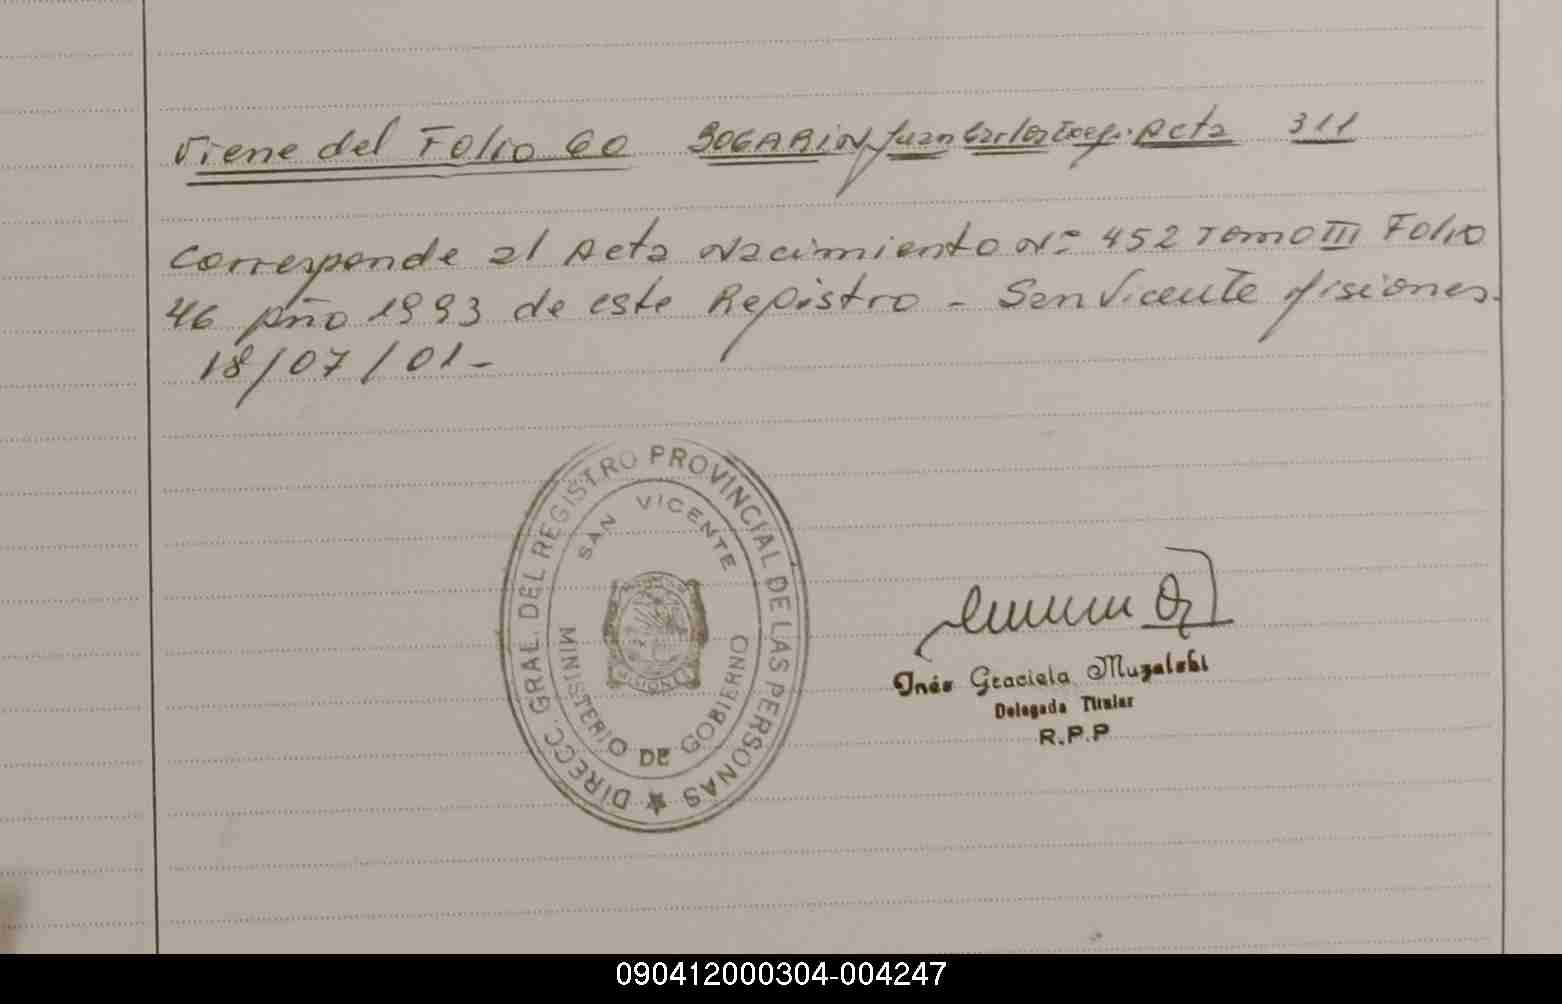 Viene del Folio 60 BOGARIN, Juan Carlos Acta 311
Corresponde al Acta Nacimiento Nº 452 Tomo III Folio
46 Año 1993 de este Registro - San Vicente Misiones.
18/07/01-
DIRECC. GRAL. DEL REGISTRO PROVINCIAL DE LAS PERSONAS
SAN VICENTE
MISIONES
MINISTERIO DE GOBIERNO
Inés Graciela Muzalski
Delegada Titular
R.P.P
090412000304-004247